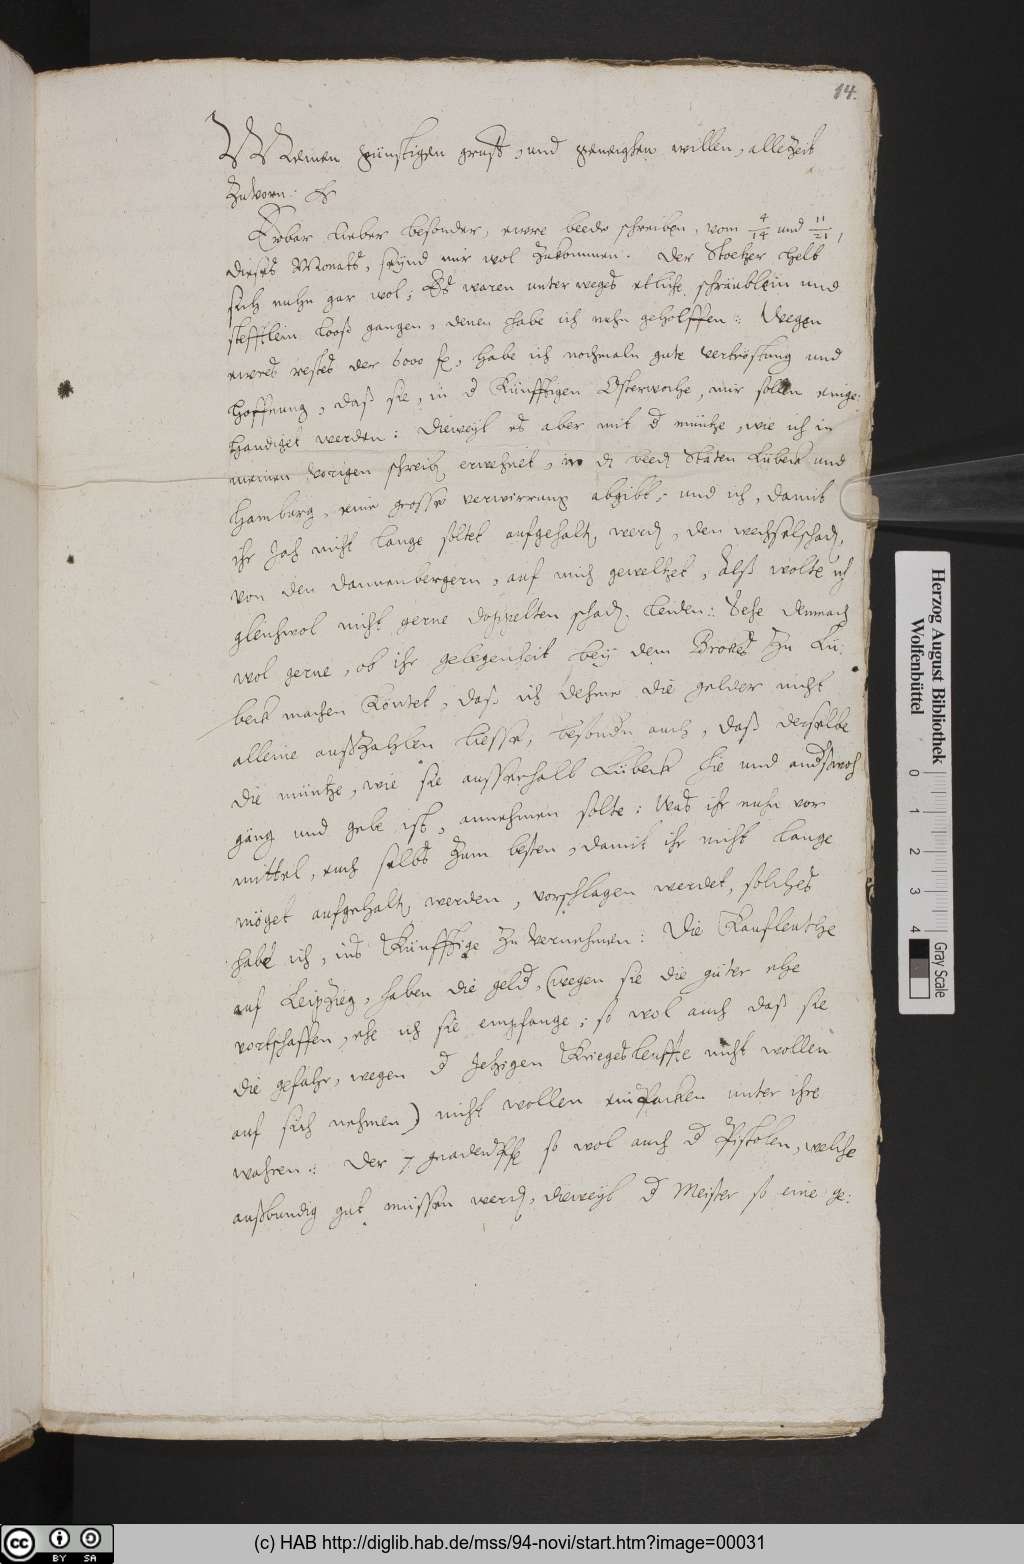 14.
Meinen günstigen gruß, und geneigten willen, allezeit
Zuvorn: &
Erbar lieber besonder, ewre beede schreiben, vom 4/14 und 11/21,
dieses Monats, seynd mir wol zukommen. Der Stocher helt
sich nuhn gar wol; Es waren unterweges etliche schräublein und
stefftlein looß gangen, denen habe ich nuhn geholffen: Wegen
ewres restes der 6000 habe ich nochmaln gute vertröstung und
hoffnung, daß sie, in d Künfftigen Osterwoche, mir sollen einge:
handiget werden: Dieweyl es aber mit d müntze, wie ich in
meinen vorigen schreib erwehnet, in beed Stäten Lübeck und
Hamburg, eine grosse verwirrung abgibt; und ich, damit
ihr Jah nicht lange soltet aufgehalt werd, den wechselschad,
von den dannenbergern, auf mich geweltzet, Alß wolte ich
gleichwol nicht gerne doppelten schad leiden: Sehe demnach
wol gerne, ob ihr gelegenheit bey dem Brokes zu Lü:
beck machen köntet, daß ich dehme die gelder nicht
alleine außzahlen liesse, besondn auch, daß derselbe
die müntze, wie sie ausserhalb Lübeck hie und andswoh
gäng und gebe ist, annehmen solte: Was ihr nuhn vor
mittel, euch selbs zum besten, damit ihr nicht lange
möget aufgehalt werden, vorschlagen werdet, solches
habe ich, ins Künfftige zu vernehmen: Die Kaufleuthe
auf Leipzieg, haben die geld, (wegen sie die güter ehe
vortschaffen, ehe ich sie empfange; so wol auch daß sie
die gefahr, wegen d Jetzigen Kriegesleuffte nicht wollen
auf sich nehmen) nicht wollen einpacken unter ihre
wahren: Der 7 so wol auch d Pistolen, welche
außbundig gut müssen werd, dieweyl d Meister so eine ge:
Herzog August Bibliothek
Wolfenbüttel
0 1 2 3 4
Gray Scale
cc BY SA
(c) HAB http://diglib.hab.de/mss/94-novi/start.htm?image=00031